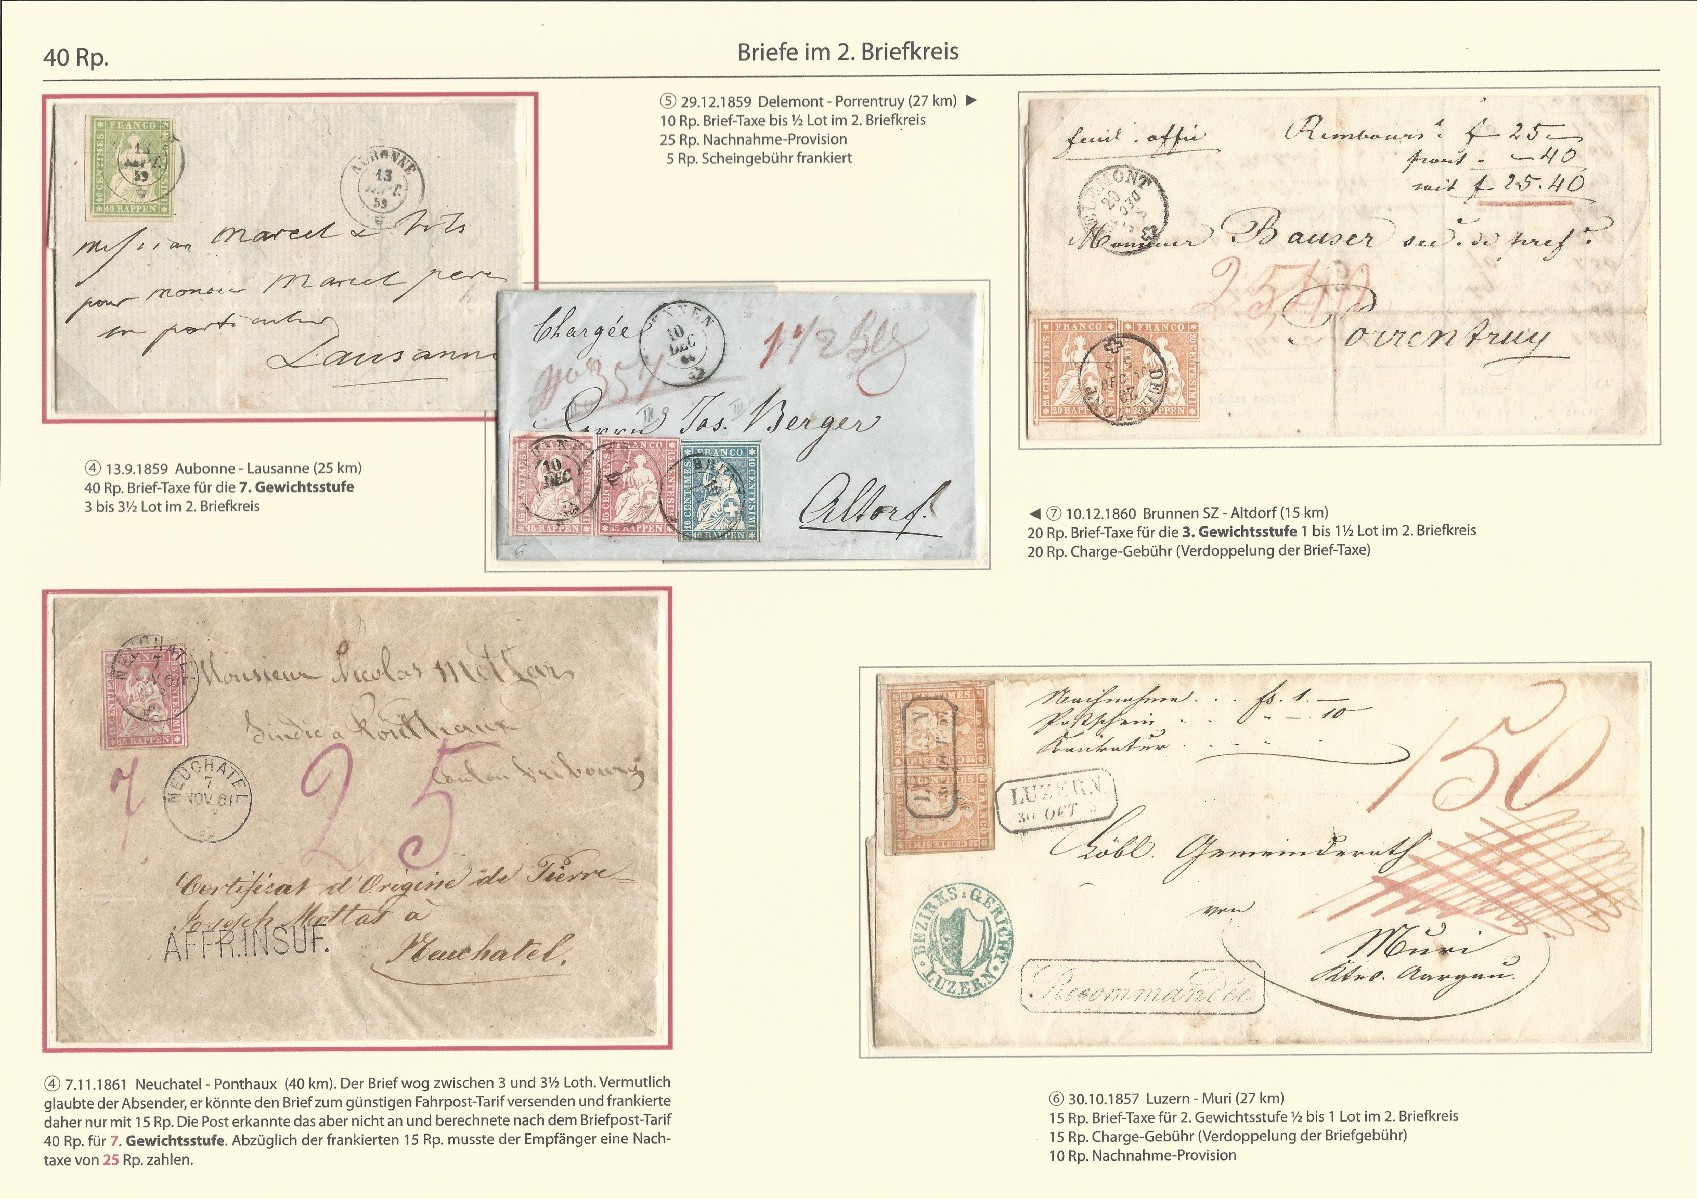 40 Rp.
Briefe im 2. Briefkreis
⑤ 29.12.1859 Delemont - Porrentruy (27 km) ▶
10 Rp. Brief-Taxe bis ½ Lot im 2. Briefkreis
25 Rp. Nachnahme-Provision
5 Rp. Scheingebühr frankiert
FRANCO
40 RAPPEN
AUBONNE
13
59
Marcel & fils
pour monsieur Marcel pere
en particulier
Lausanne
④ 13.9.1859 Aubonne - Lausanne (25 km)
40 Rp. Brief-Taxe für die 7. Gewichtsstufe
3 bis 3½ Lot im 2. Briefkreis
Rembours.t f 25 —
port - — 40
f 25.40
DELEMONT
Monsieur Bauser secr. de pref.
25,40
Porrentruy
FRANCO FRANCO
20 RAPPEN
DELEMONT
Chargée
10
DEC
1 1/2
Herrn Jos. Berger
Altorf.
FRANCO FRANCO
10
DEC
15 RAPPEN 10 RAPPEN
◀ ⑦ 10.12.1860 Brunnen SZ - Altdorf (15 km)
20 Rp. Brief-Taxe für die 3. Gewichtsstufe 1 bis 1½ Lot im 2. Briefkreis
20 Rp. Charge-Gebühr (Verdoppelung der Brief-Taxe)
Monsieur Nicolas Mottas
Sindic à Ponthaux
Canton Fribourg
NEUCHATEL
7
NOV 61
7 25
Certificat d'Origine de Pierre
Joseph Mottas à
AFFR.INSUF.
Neuchatel.
④ 7.11.1861 Neuchatel - Ponthaux (40 km). Der Brief wog zwischen 3 und 3½ Loth. Vermutlich
glaubte der Absender, er könnte den Brief zum günstigen Fahrpost-Tarif versenden und frankierte
daher nur mit 15 Rp. Die Post erkannte das aber nicht an und berechnete nach dem Briefpost-Tarif
40 Rp. für 7. Gewichtsstufe. Abzüglich der frankierten 15 Rp. musste der Empfänger eine Nach-
taxe von 25 Rp. zahlen.
Nachnahme . . fs. 1. —
Postschein . . " — 10
150
LUZERN
30 OCT
Löbl. Gemeinderath
von
Muri
Ktn. Aargau.
BEZIRKS-GERICHT
LUZERN
Recommandée
⑥ 30.10.1857 Luzern - Muri (27 km)
15 Rp. Brief-Taxe für 2. Gewichtsstufe ½ bis 1 Lot im 2. Briefkreis
15 Rp. Charge-Gebühr (Verdoppelung der Briefgebühr)
10 Rp. Nachnahme-Provision